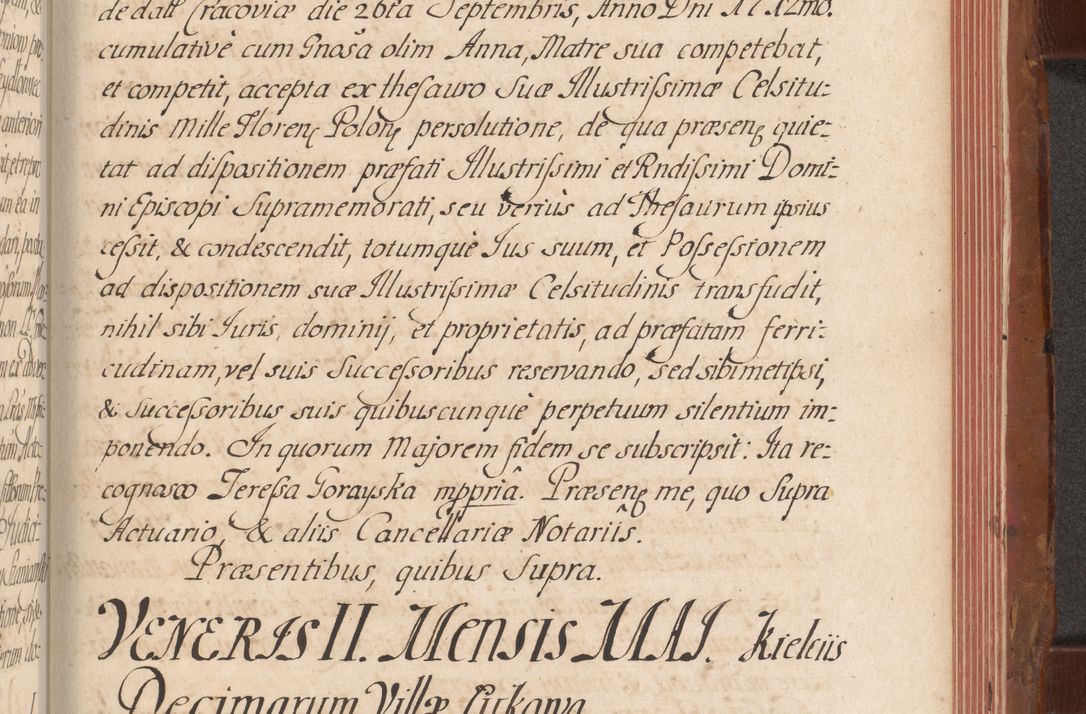 de dat: Cracoviæ die 26ta Septembris, Anno Dni 1712mo.
cumulativè cum Gnosa olim Anna, Matre sua competebat,
et competit, accepta ex thesauro Suæ Illustrissimæ Celsitu:
dinis Mille Floren: Polon: persolutione, de qua præsen: quie:
tat ad dispositionem præfati Illustrissimi et Rndissimi Domi:
ni Episcopi Supramemorati, seu verius ad Thesaurum ipsius
cessit, & condescendit, totumque Jus suum, et Possessionem
ad dispositionem suæ Illustrissimæ Celsitudinis transfudit,
nihil sibi Juris, dominij, et proprietatis, ad præfatam ferri:
cudinam, vel suis Successoribus reservando, sed sibimetipsi,
& Successoribus suis quibuscunquè perpetuum silentium im:
ponendo. In quorum Majorem fidem se subscripsit: Ita re:
cognosco Teressa Gorayska mppria. Præsen: me, quo Supra
Actuario, & aliis Cancellariæ Notariis.
Præsentibus, quibus Supra.
VENERIS II. Mensis MAI. Kielciis
Decimarum Villæ Lutkowa